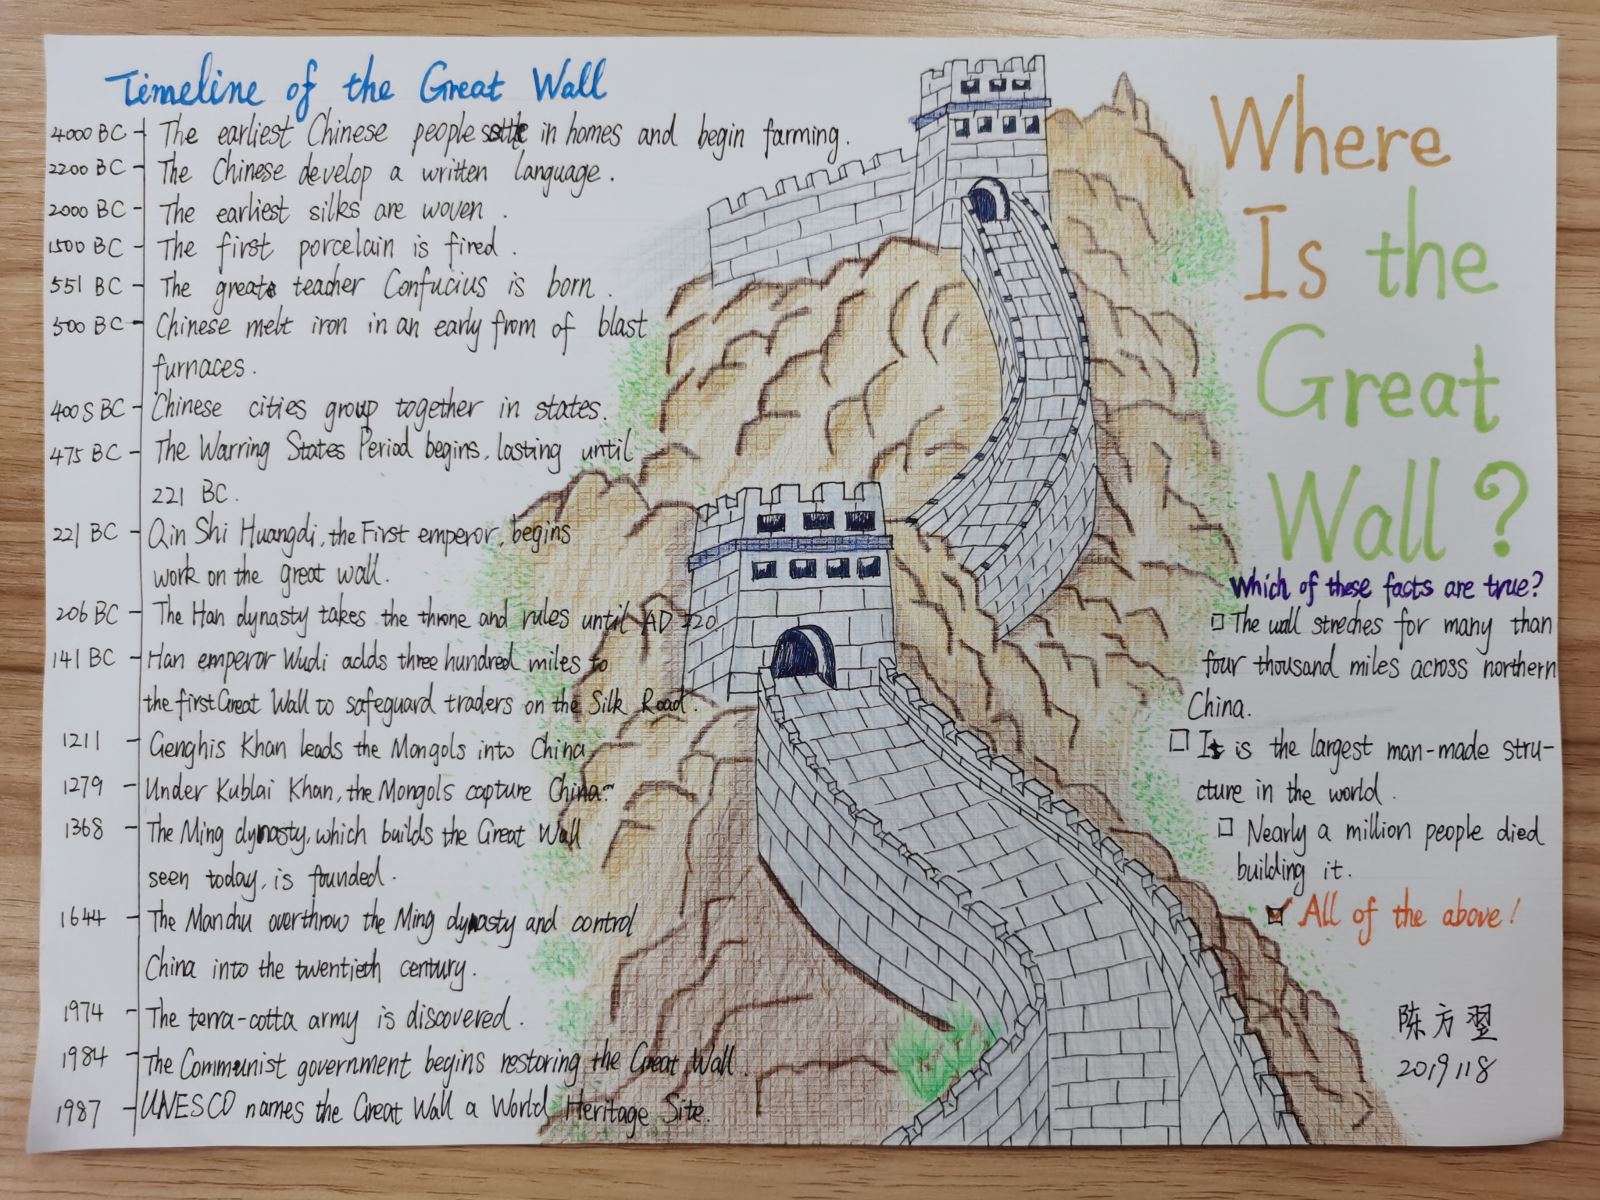 Timeline of the Great Wall
4000 BC The earliest Chinese people settle in homes and begin farming.
2200 BC The Chinese develop a written language.
2000 BC The earliest silks are woven.
1500 BC The first porcelain is fired.
551 BC The great teacher Confucius is born.
500 BC Chinese melt iron in an early from of blast
furnaces.
400s BC Chinese cities group together in states.
475 BC The Warring States Period begins, lasting until
221 BC.
221 BC Qin Shi Huangdi, the First emperor, begins
work on the great wall.
206 BC The Han dynasty takes the throne and rules until AD 220
141 BC Han emperor Wudi adds three hundred miles to
the first Great Wall to safeguard traders on the Silk Road.
1211 Genghis Khan leads the Mongols into China
1279 Under Kublai Khan, the Mongols capture China.
1368 The Ming dynasty, which builds the Great Wall
seen today, is founded.
1644 The Manchu overthrow the Ming dynasty and control
China into the twentieth century.
1974 The terra-cotta army is discovered.
1984 The Communist government begins restoring the Great Wall.
1987 UNESCO names the Great Wall a World Heritage Site.
Where
Is the
Great
Wall?
Which of these facts are true?
The wall streches for many than
four thousand miles across northern
China.
It is the largest man-made stru-
cture in the world.
Nearly a million people died
building it.
All of the above!
陈方翌
2019118